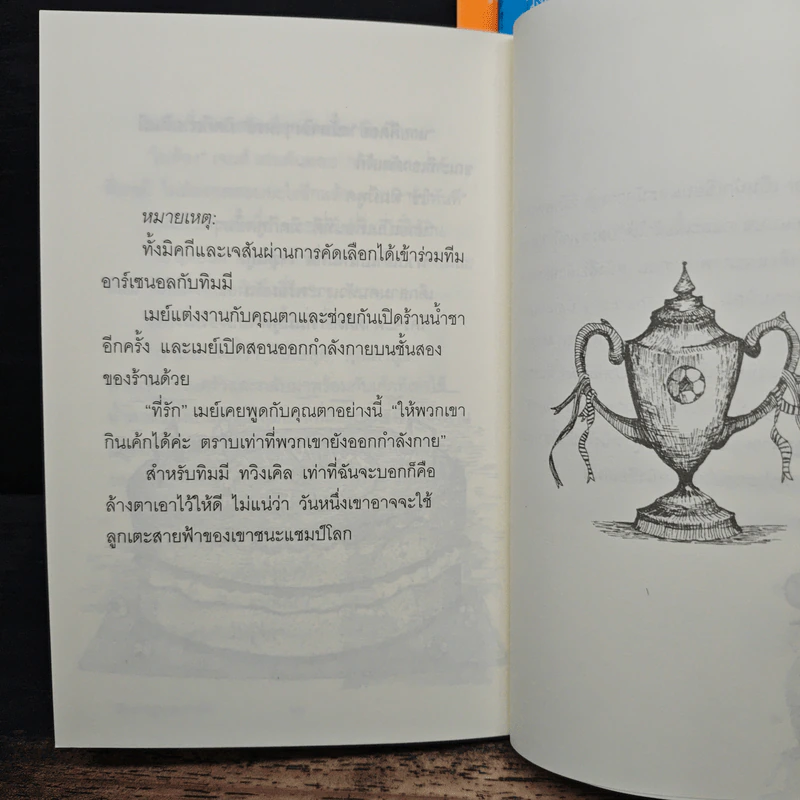 หมายเหตุ:
ทั้งมิคกีและเจสันผ่านการคัดเลือกได้เข้าร่วมทีม
อาร์เซนอลกับทิมมี
เมย์แต่งงานกับคุณตาและช่วยกันเปิดร้านน้ำชา
อีกครั้ง และเมย์เปิดสอนออกกำลังกายบนชั้นสอง
ของร้านด้วย
“ที่รัก” เมย์เคยพูดกับคุณตาอย่างนี้ “ให้พวกเขา
กินเค้กได้ค่ะ ตราบเท่าที่พวกเขายังออกกำลังกาย”
สำหรับทิมมี ทวิงเคิล เท่าที่ฉันจะบอกก็คือ
ล้างตาเอาไว้ให้ดี ไม่แน่ว่า วันหนึ่งเขาอาจจะใช้
ลูกเตะสายฟ้าของเขาชนะแชมป์โลก